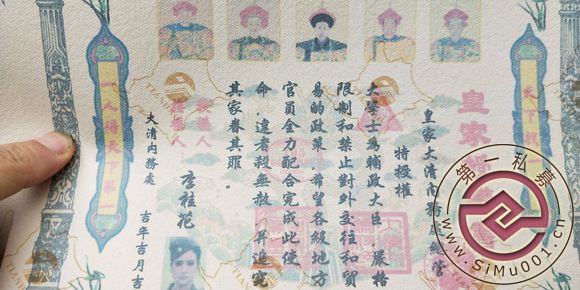 皇家
皇家大清內務府總管
特授權
大學士為輔政大臣 嚴格
限制和禁止對外交往和貿
易的政策 希望各級地方
官員全力配合完成此使
命，違者殺無赦，并追究
其家眷其罪。
李桂花
大清內務處 吉年吉月吉
一人得天下第一
第一私募
www.SiMu001.cn